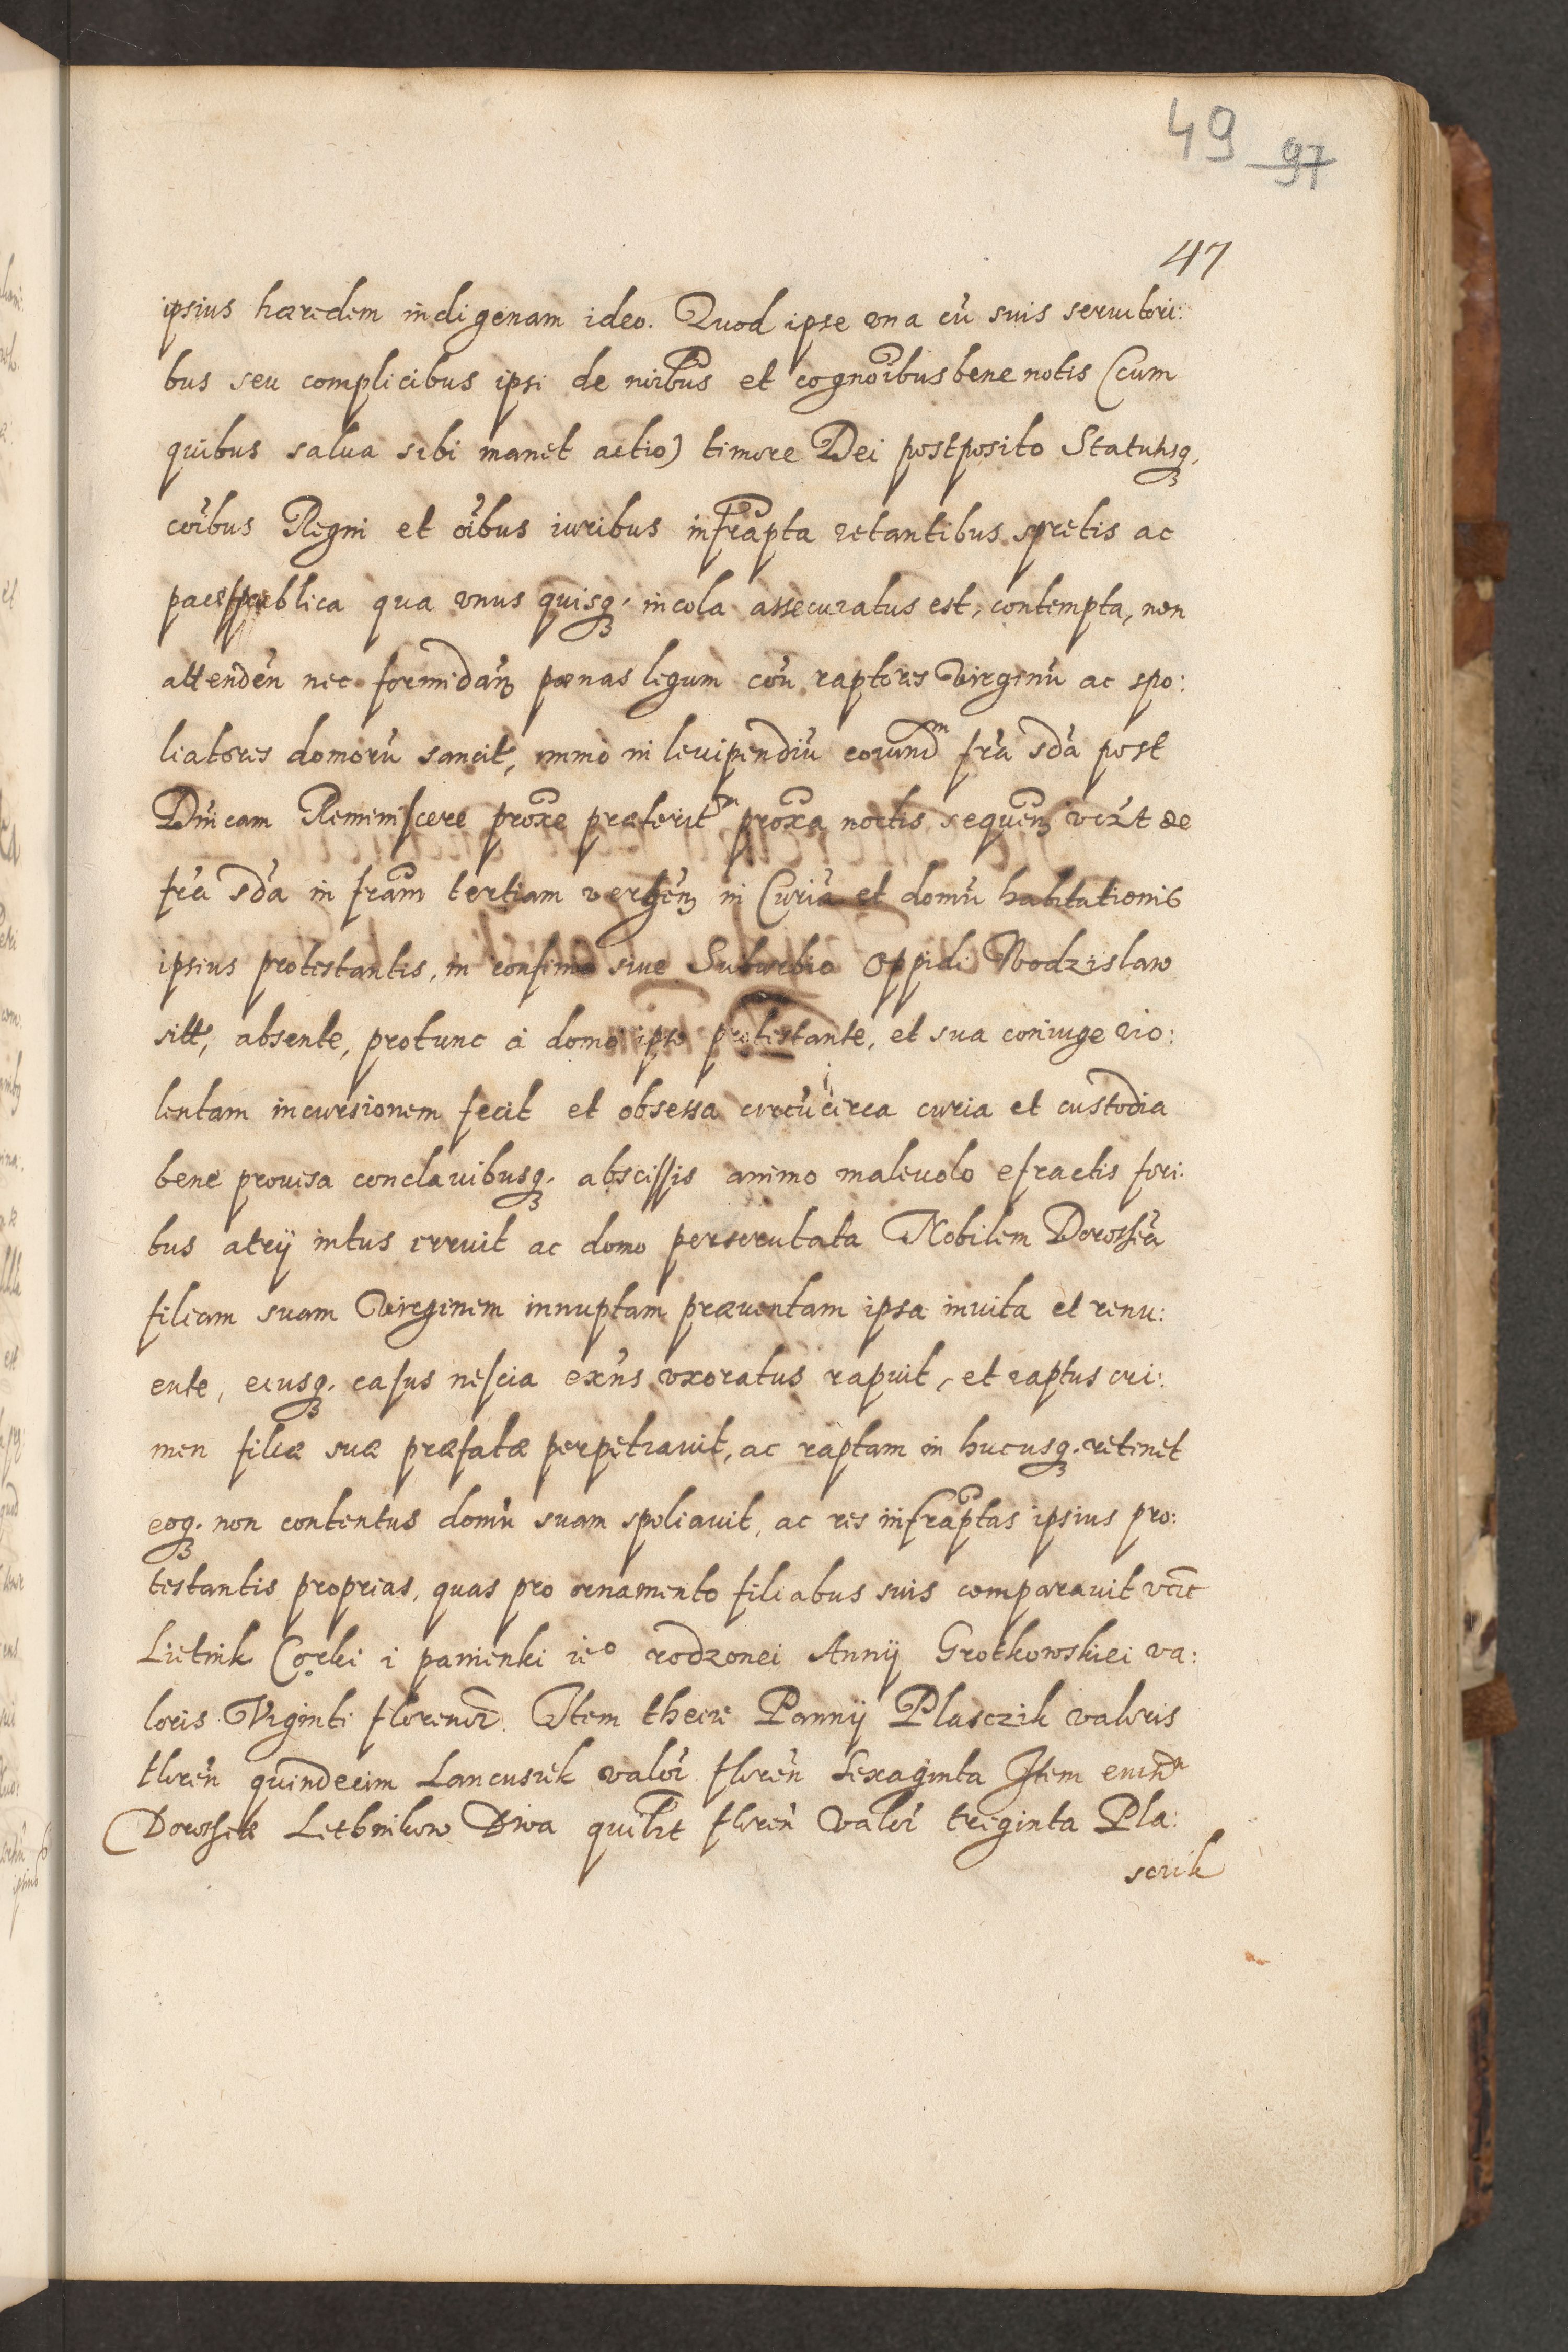 49 97
47
ipsius hæredem indigenam ideo. Quod ipse vna cũ suis seruitori:
bus seu complicibus ipsi de noĩbus et cognoĩbus bene notis (cum
quibus salua sibi manet actio) timore Dei postposito Statutisq,
coĩbus Regni et oĩbus iuribus infrapta vetantibus spretis ac
pace publica qua vnus quisq, incola assecuratus est, contempta, non
attendeñ nec formidañ pœnas legum coñ raptores Virginũ ac spo:
liatores domorũ sancit, immò in leuipendiũ eorund^m fr̃a sd̃a post
Dñicam Reminiscere prox̃e præterit^m prox̃a noctis sequeñ vcz̃t de
fr̃a sd̃a in fr̃am tertiam vergeñ in Curiã et domũ habitationis
ipsius protestantis, in confinio siue Suburbio Oppidi Wodzislaw
sitt, absente, protunc à domo ipso protestante, et sua coniuge vio:
lentam incursionem fecit et obsessa circũcirca curia et custodia
bene prouisa conclauibusq, abscissis animo maleuolo efractis fori:
bus atrij intus irruit ac domo perscrutata Nobilem Dorotheã
filiam suam Virginem innuptam præuentam ipsa inuita et renu:
ente, eiusq, casus nescia exñs vxoratus rapuit, et raptus cri:
men filiæ suæ præfatæ perpetrauit, ac raptam in hucusq, retinet
eoq, non contentus domũ suam spoliauit, ac res infraptas ipsius pro:
testantis proprias, quas pro ornamento filiabus suis comparauit vcĩt
Lietnik Corki i panienki ie^o rodzonei Annij Grotkowskiei va:
loris Viginti florenor̃. Item theiże Pannij Plasczik valoris
floreñ quindecim Lancusiek valor̃ floreñ Sexaginta Item
Letbnikow Dwa quilzt floreñ valor̃ triginta Pla:
scik